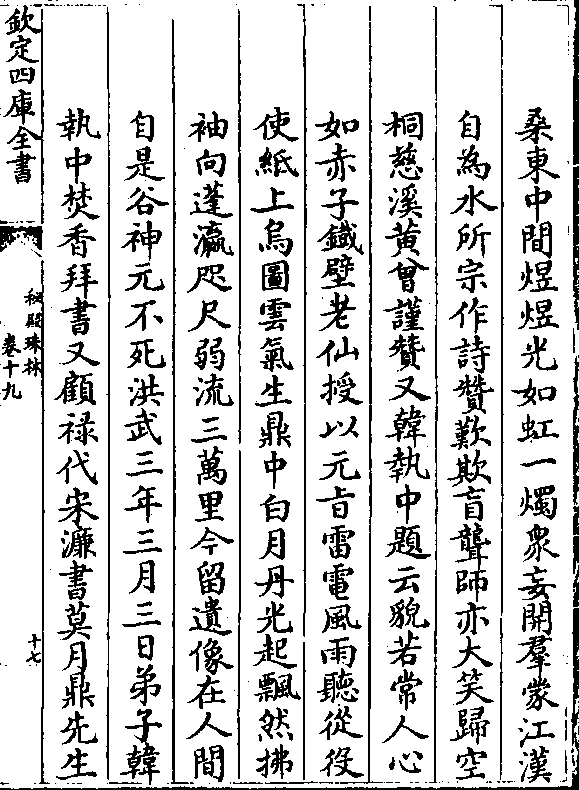 桑東中間煜煜光如虹一燭衆妄開羣蒙江漢
自為水所宗作詩贊歎欺盲聾師亦大笑歸空
桐慈溪黄曾謹贊又韓執中題云貌若常人心
如赤子鐡壁老仙授以元旨雷電風雨聽從役
使紙上烏圖雲氣生鼎中白月丹光起飄然拂
袖向蓬瀛咫尺弱流三萬里今留遺像在人間
自是谷神元不死洪武三年三月三日弟子韓
執中焚香拜書又顧禄代宋濂書莫月鼎先生
欽定四庫全書
秘殿珠林
卷十九
十七